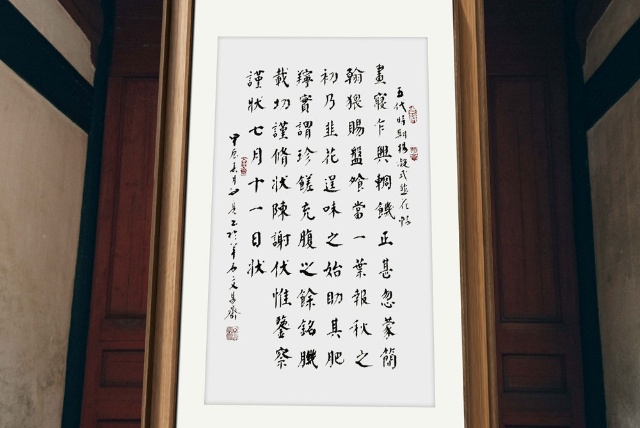 五代時期楊凝式韭花帖
晝寢乍興輖饑正甚忽蒙簡
翰猥賜盤飧當一葉報秋之
初乃韭花逞味之始助其肥
羜實謂珍饈充腹之餘銘
載切謹脩狀陳謝伏惟鑒察
謹狀七月十一日狀
甲辰春月